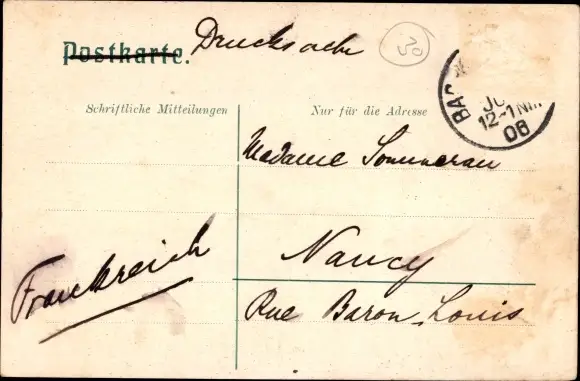 Postkarte. Drucksache
30
BA
JU
12-1 NM.
06
Schriftliche Mitteilungen
Nur für die Adresse
Madame Sommerau
Nancy
Frankreich
Rue Baron Louis